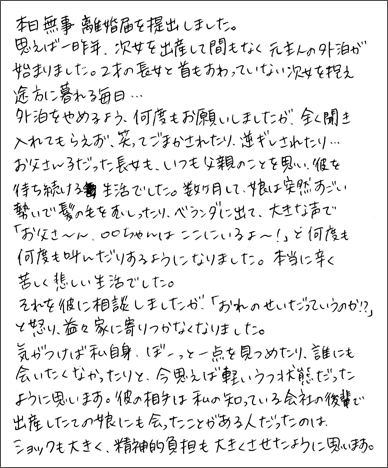 本日無事 離婚届を提出しました。
思えば一昨年、次女を出産して間もなく元主人の外泊が
始まりました。2才の長女と首もすわっていない次女を抱え
途方に暮れる毎日…
外泊をやめるよう、何度もお願いしましたが、全く聞き
入れてもらえず、笑ってごまかされたり、逆ギレされたり…
お父さん子だった長女も、いつも父親のことを思い、彼を
待ち続ける 生活でした。数ヶ月して、娘は突然すごい
勢いで髪の毛をむしったり、ベランダに出て、大きな声で
「お父さ〜ん、○○ちゃんはここにいるよ〜!」と何度も
何度も叫んだりするようになりました。本当に辛く
苦しく悲しい生活でした。
それを彼に相談しましたが、「おれのせいだっていうのか!?」
と怒り、益々家に寄りつかなくなりました。
気がつけば私自身、ぼーっと一点を見つめたり、誰にも
会いたくなかったりと、今思えば軽いうつ状態だった
ように思います。彼の相手は私の知っている会社の後輩で
出産したての娘にも会ったことがある人だったのは、
ショックも大きく、精神的負担も大きくさせたように思います。